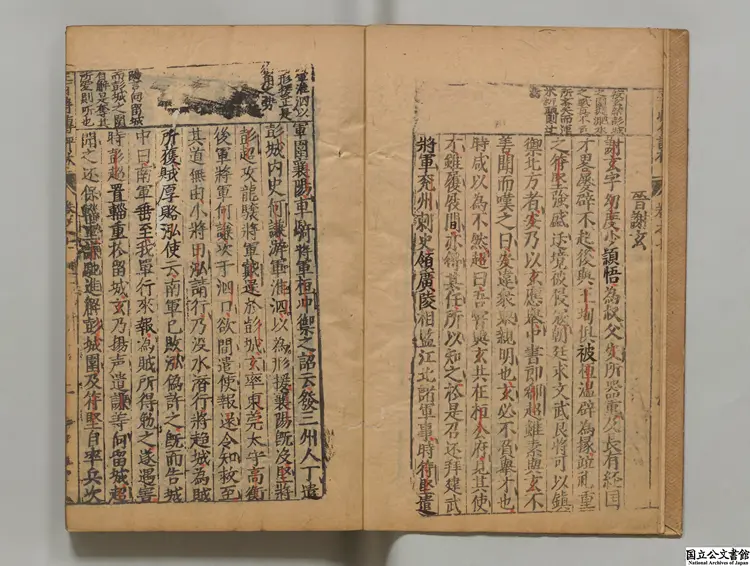 晉謝玄
謝玄字幼度少頴悟為叔父安所器重及長有經囯
才畧屢辟不起後與王珣俱被桓溫辟為掾並礼重
之符堅強盛边境被侵朝廷求文武良將可以鎮
御北方者安乃以玄應舉中書郎郗超雖素與玄不
善聞而嘆之曰安違衆舉親明也玄必不負舉才也
時咸以為不然超曰吾嘗與玄共在桓公府見其使
才雖履屐間亦得其任所以知之於是召还拜建武
將軍兖州刺史領廣陵相監江北諸軍事時符堅遣
軍淮泗以
形援正是
軍圍襄陽車騎將軍桓冲禦之詔玄發三州人丁遣
彭城内史何謙游軍淮泗以為形援襄陽既及堅將
彭超攻龍驤將軍戴逯於彭城玄率東莞太守高衡
後軍將軍何謙次于泗口欲間遣使報逯令知救至
其道無由小將田泓請行乃没水潛行將趨城為賊
所獲賊厚賂泓使云南軍已敗泓偽許之既而告城
中曰南軍垂至我單行來報為賊所得勉之遂遇害
陽言向留城
而彭城之圍
自解是奪其
所愛則听也
時彭超置輜重於留城玄乃揚声遣謙等向留城超
聞之还保輜重謙馳進解彭城圍及符堅自率兵次
国立公文書館
National Archives of Japan